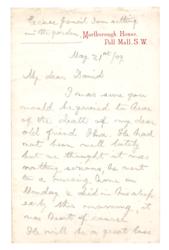 Excuse pencil I am sitting
in the garden.
Marlborough House,
Pall Mall, S.W.
May 21st/07
My dear David
I was sure you
would be grieved to hear
of the death of my dear
old friend. He had
not been well lately
but we thought it was
nothing serious, he went
to a nursing home on
Monday & died in his sleep
early this morning, it
was Heart of course.
He will be a great loss